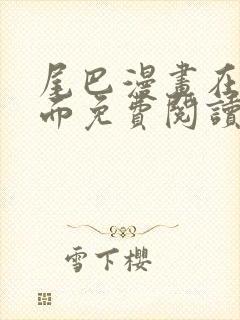 尾巴漫畫在
而免費閱讀
雪下櫻